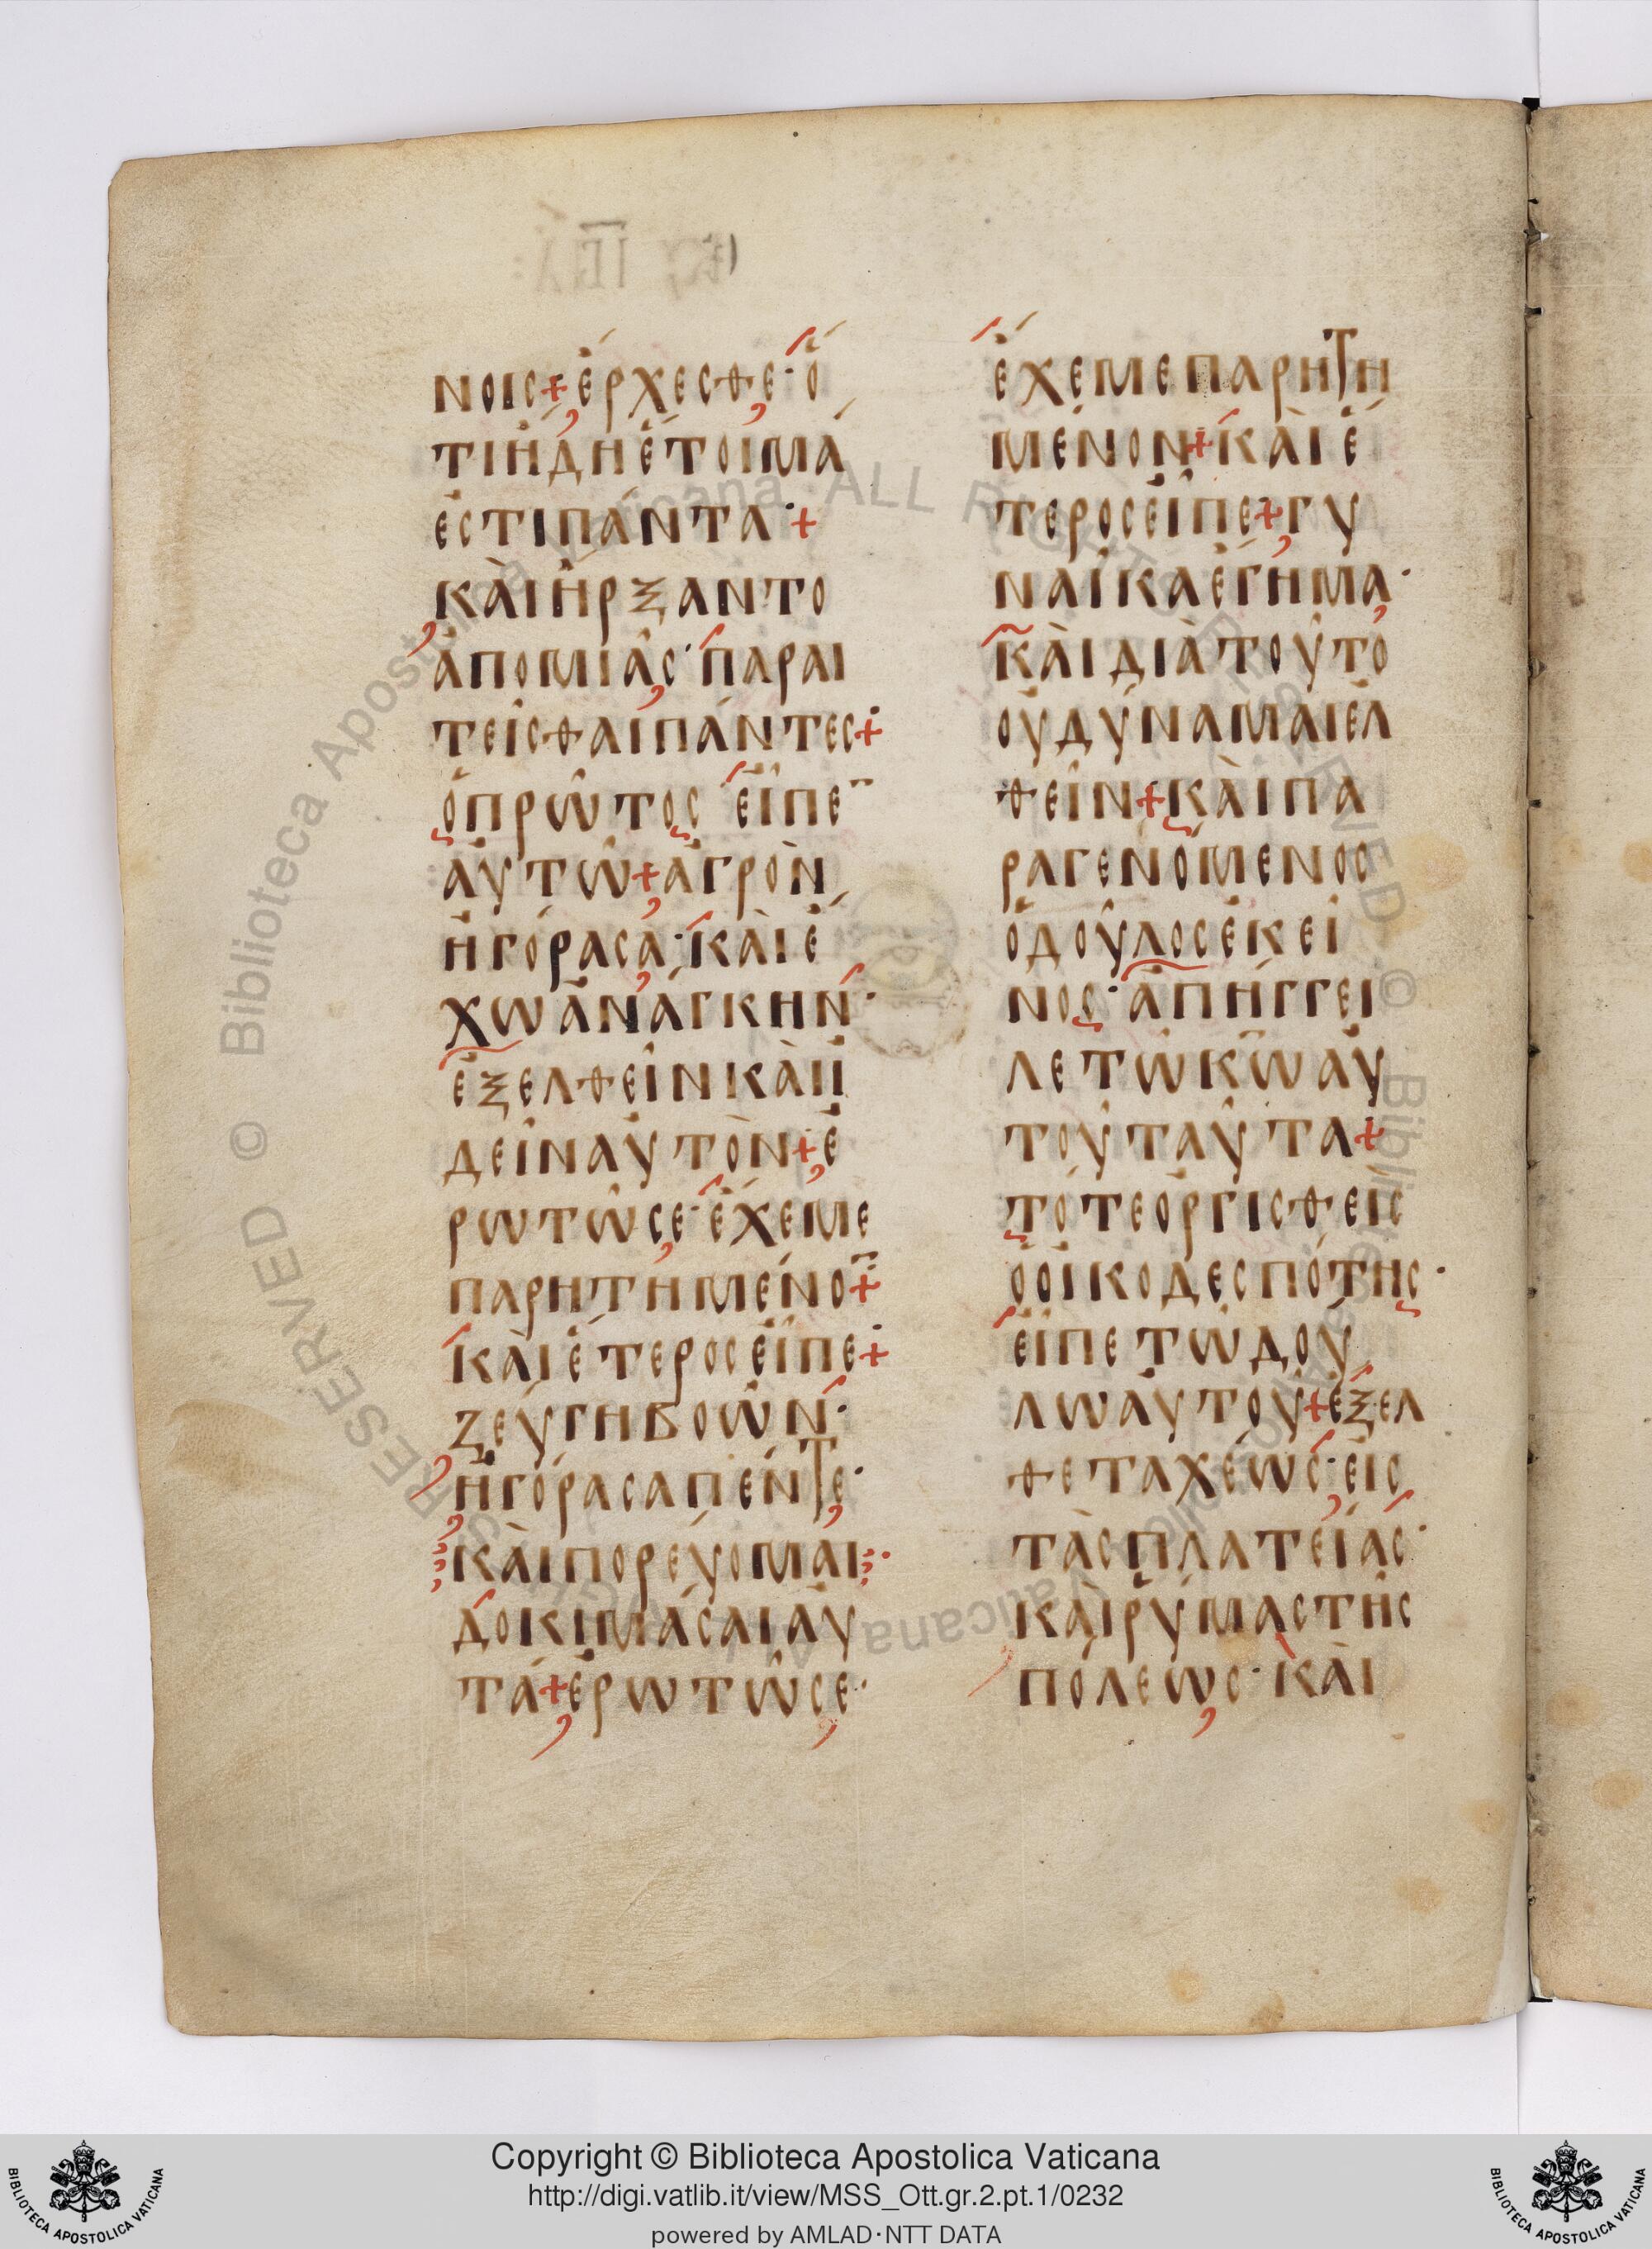 ΝΟΙϹ+ἘΡΧΕϹΘΕ·Ὅ
ΤΙἨΔΗἙΤΟΙΜΆ
ἘϹΤΙΠΆΝΤΑ·+
ΚΑῚἨΡΞΑΝΤΟ
ἈΠΟΜΙΑ͂Ϲ·ΠΑΡΑΙ
ΤΕΙ͂ϹΘΑΙΠΆΝΤΕϹ·+
ὉΠΡΩ͂ΤΟϹ ΕἾΠΕ¨
ΑὐΤΩ͂+ἈΓΡῸΝ
ἨΓΌΡΑϹΑ·ΚΑῚἜ
ΧΩἈΝΆΓΚΗΝ·
ἘΞΕΛΘΕΙ͂ΝΚΑῚΪ
ΔΕΙ͂ΝΑὐΤῸΝ+Ἐ
ΡΩΤΩ͂ϹΕ·ἜΧΕΜΕ
ΠΑΡΗΤΗΜΈΝΟ̅+
ΚΑῚἝΤΕΡΟϹΕἾΠΕ·+
ΖΕΎΓΗΒΟΩ͂Ν·
ἨΓΌΡΑϹΑΠΈΝΤΕ·
ΚΑῚΠΟΡΕΎΟΜΑΙ·
ΔΟΚΙΜΆϹΑΙΑὐ
ΤΆ+ἘΡΩΤΩ͂ϹΕ·
ἜΧΕΜΕΠΑΡΗΤΗ
ΜΈΝΟΝ+ΚΑῚἝ
ΤΕΡΟϹΕἾΠΕ+ΓΥ
ΝΑΙ͂ΚΑἜΓΗΜΑ·
ΚΑῚΔΙᾺΤΟΥ͂ΤΟ
ΟὐΔΎΝΑΜΑΙἘΛ
ΘΕΙ͂Ν+ΚΑῚΠΑ
ΡΑΓΕΝΌΜΕΝΟϹ
ὉΔΟΥ͂ΛΟϹἘΚΕΙ͂
ΝΟϹ·ἈΠΉΓΓΕΙ
ΛΕΤΩ͂Κ̅Ω̅Αὐ
ΤΟΥ͂ΤΑΥ͂ΤΑ+
ΤΌΤΕὈΡΓΙϹΘΕῚϹ
ὉΟἸΚΟΔΕϹΠΌΤΗϹ·
ΕἾΠΕΤΩ͂ΔΟΥ
ΛΩΑὐΤΟΥ͂+ἜΞΕΛ
ΘΕΤΑΧΈΩϹ·ΕἸϹ
ΤᾺϹΠΛΑΤΕΊΑϹ·
ΚΑῚΡΎΜΑϹΤΗ͂Ϲ
ΠΌΛΕΩϹ·ΚΑῚ
Copyright © Biblioteca Apostolica Vaticana
http://digi.vatlib.it/view/MSS_Ott.gr.2.pt.1/0232
powered by AMLAD·NTT DATA
BIBLIOTECA APOSTOLICA VATICANA
BIBLIOTECA APOSTOLICA VATICANA